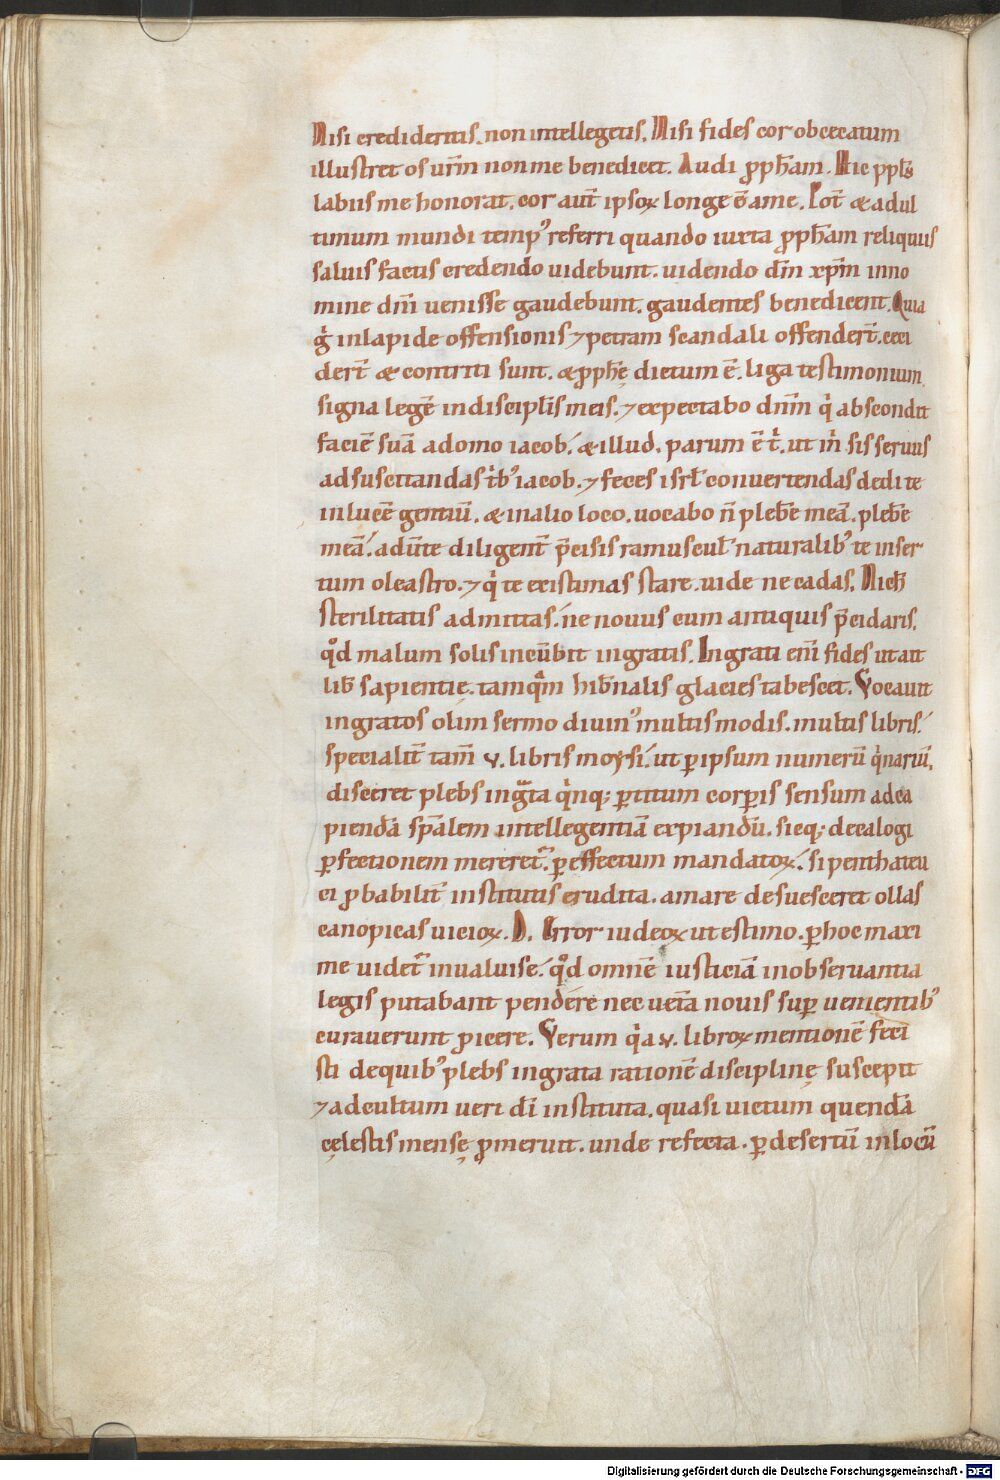 Nisi credideritis. non intellegetis. Nisi fides cor obcecatum
illustret os urm̄ non me benedicet. Audi ꝓph̄am. Hic ppl̄s
labiis me honorat. cor aut̄ ipsoꝝ longe ē a me. Pot̄ & ad ul
timum mundi tempꝰ referri quando iuxta ꝓph̄am reliquiis
saluis factus credendo uidebunt. uidendo dm̄ xp̄m in no
mine dn̄i uenisse gaudebunt. gaudentes benedicent. Quia
g̍ in lapide offensionis ⁊ petram scandali offendert̄. ceci
dert̄ & contriti sunt. & ꝓph̄ę dictum ē. liga testimonium
signa legē in discipl̄is meis. ⁊ expectabo dnm̄ q̍ abscondit
faciē suā a domo iacob. & illud. parum ē t̍. ut m̍ sis seruus
ad suscitandas t̍bꝰ iacob. ⁊ feces isrl̄ conuertendas dedi te
in lucē gentiū. & in alio loco. uocabo n̄ plebē meā. plebē
meā. adūte diligent̄ p̄cisis ramuscul̄ naturalibꝰ te inser
tum oleastro. ⁊ q̍ te existimas stare. uide ne cadas. Nich̄
sterilitatis admittas. ne nouus cum antiquis p̄cidaris.
qd̊ malum solis incūbit ingratis. Ingrati eni̅ fides ut ait
lib̄ sapientię. tamqm̄ hib̄nalis glacies tabescet. Vocauit
ingratos olim sermo diuinꝰ multis modis. multis libris.
specialit̄ tam̄ v. libris moysi. ut ꝑ ipsum numerū q̍nariū.
disceret plebs ingᷓta q̍nq; ꝑtitum corꝑis sensum ad ca
piendā sp̄alem intellegentiā expiandū. sicq; decalogi
ꝑfectionem mereret᷑. ꝑ effectum mandatoꝝ. si penthateu
ci ꝓbabilit̄ institutis erudita. amare desuesceret ollas
canopicas uicioꝝ. D. Error iudeoꝝ ut estimo. ꝑ hoc maxi
me uidet᷑ inualuise. qd̊ omnē iusticiā in obseruantia
legis putabant pendere nec uetā nouis suꝑ uenientibꝰ
curauerunt ꝓicere. Verum q̍a v. libroꝝ mentionē feci
sti de quibꝰ plebs ingrata rationē disciplinę suscepit
⁊ ad cultum ueri dī instituta. quasi uictum quendā
cęlestis mensę ꝓmeruit. unde refecta. ꝑ desertū in locū
Digitalisierung gefördert durch die Deutsche Forschungsgemeinschaft - DFG